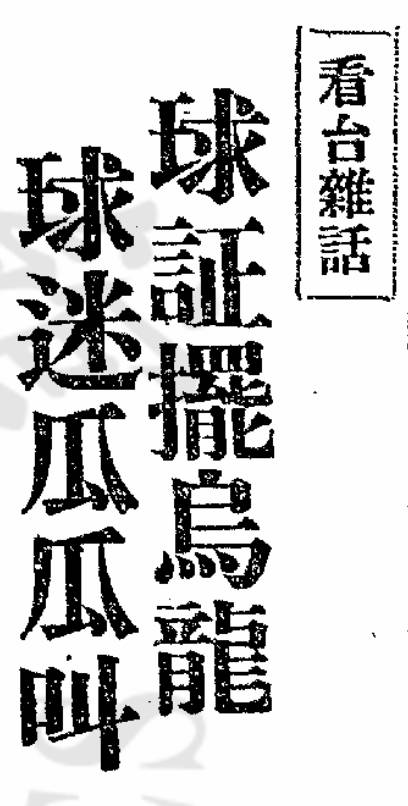 看台雜話
球証擺烏龍
球迷瓜瓜叫